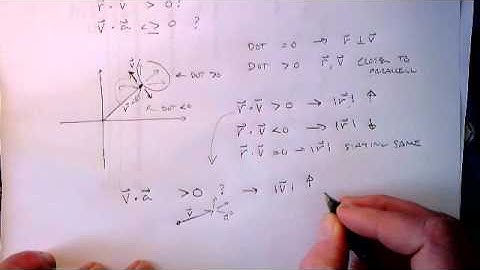 r⃗ · v⃗ > 0?
v⃗ · a⃗ ≤ ≥ 0 ?
DOT = 0 → r⃗ ⊥ v⃗
DOT > 0 r⃗, v⃗ CLOSER TO
PARALLEL
v⃗
← DOT > 0
DOT < 0
r⃗ · v⃗ > 0 → |r⃗| ↑
r⃗ · v⃗ < 0 → |r⃗| ↓
r⃗ · v⃗ = 0 → |r⃗| STAYING SAME
v⃗ · a⃗ > 0 ? → |v⃗| ↑
v⃗
a⃗